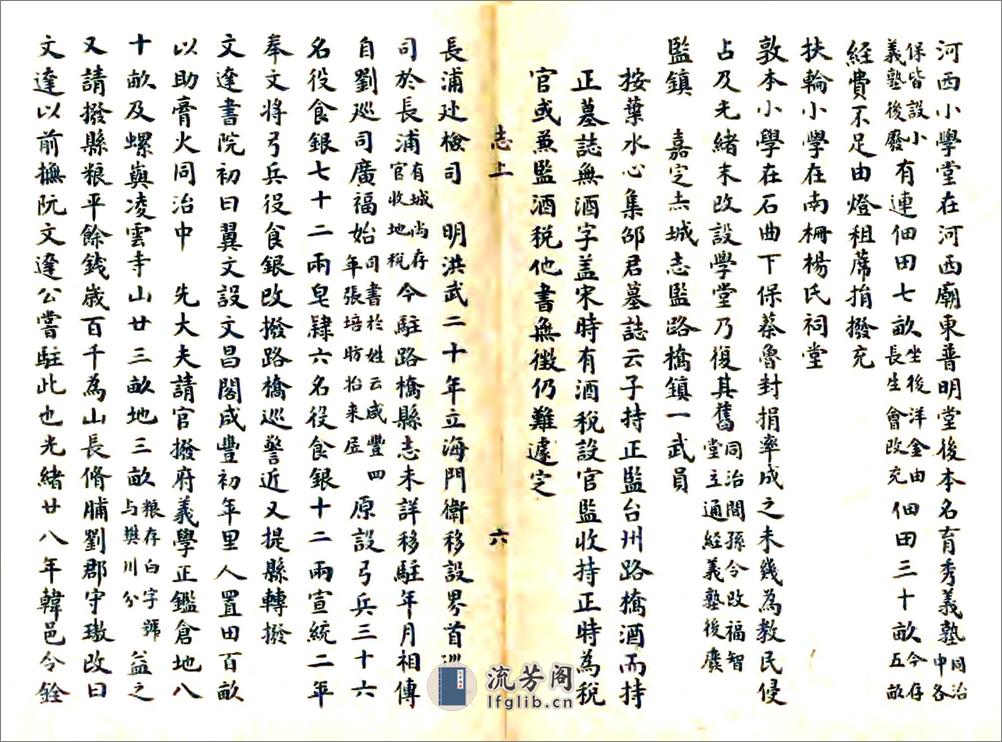 河西小學堂在河西廟東普明堂後本名育秀義塾同治中各
保皆設小義塾後廢有連佃田七畝坐後洋金由長生會改充佃田三十畝今存五畝
經費不足由燈租蓆捐撥充
扶輪小學在南柵楊氏祠堂
敦本小學在石曲下保蔡魯封捐率成之未幾為教民侵
占及光緒末改設學堂乃復其舊同治間孫令改福智堂主通經義塾後廢
監鎮　嘉定赤城志監路橋鎮一武員
按葉水心集邵君墓誌云子持正監台州路橋酒而持
正墓誌無酒字蓋宋時有酒稅設官監收持正時為稅
官或兼監酒稅他書無徵仍難遽定
志上　六
長浦廵檢司　明洪武二十年立海門衛移設界首巡
司於長浦有城尚存官收地稅今駐路橋縣志未詳移駐年月相傳
自劉巡司廣福始司書於姓云咸豐四年張培昉始来居原設弓兵三十六
名役食銀七十二兩皂隸六名役食銀十二兩宣統二年
奉文將弓兵役食銀改撥路橋巡警近又提縣轉撥
文達書院初曰翼文設文昌閣咸豐初年里人置田百畝
以助膏火同治中　先大夫請官撥府義學正鑑倉地八
十畝及螺嶼凌雲寺山廿三畝地三畝粮存白字號与樊川分益之
又請撥縣粮平餘錢歲百千為山長脩脯劉郡守璈改曰
文達以前撫阮文達公嘗駐此也光緒廿八年韓邑令銓
流芳阁
lfglib.cn